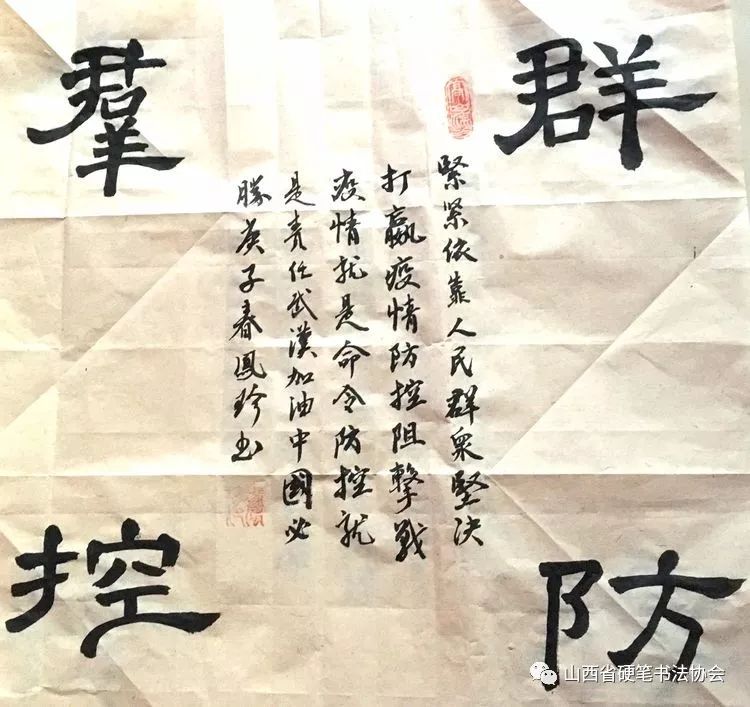 群防
羣控
緊緊依靠人民群衆堅決
打贏疫情防控阻擊戰
疫情就是命令防控就
是責任武漢加油中國必
勝庚子春鳳珍书
山西省硬笔书法协会